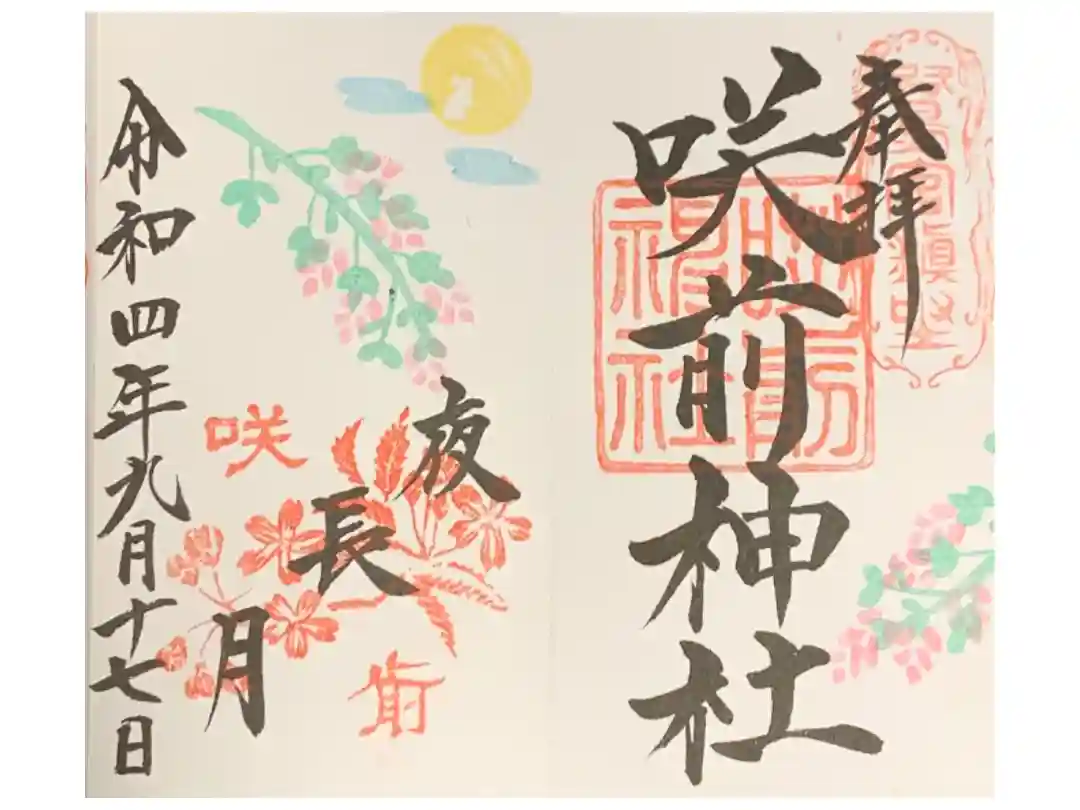 奉拝
咲前神社
咲前神社
夜長月
咲前
令和四年九月十七日